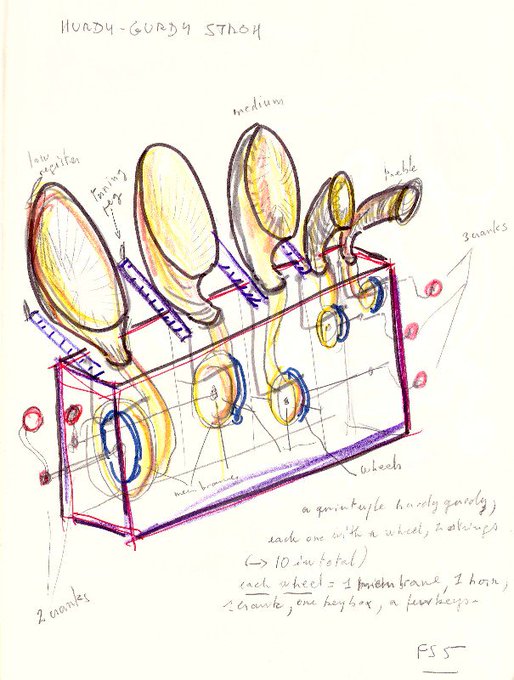 HURDY-GURDY STROH
medium
low register
tuning peg
treble
3 cranks
membranes
wheels
a quintuple hurdy gurdy,
each one with a wheel, 2 strings
(→ 10 in total)
each wheel = 1 membrane, 1 horn,
1 crank, one keybox, a few keys.
2 cranks
FS5